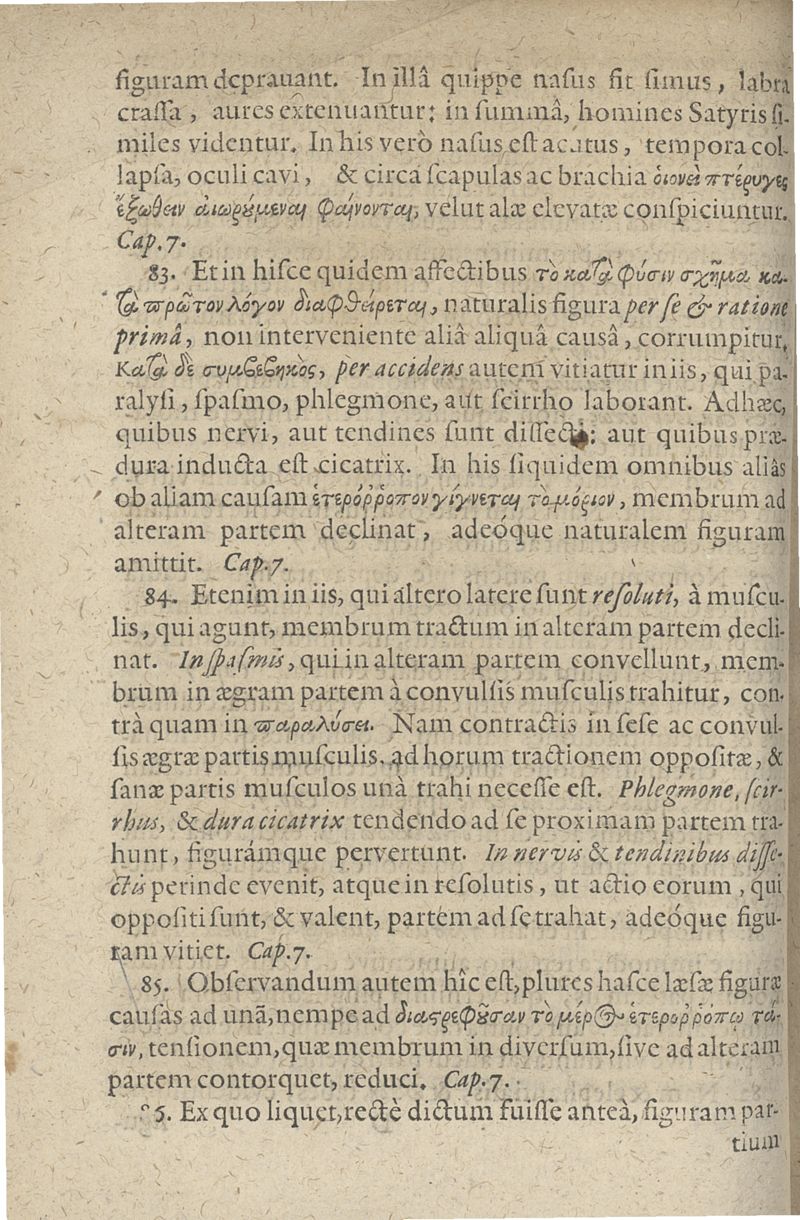 figuram depravant. In illâ quippe nasus fit simus, labra
crassa, aures extenuantur: in summâ, homines Satyris si-
miles videntur. In his verò nasus est acutus, tempora col-
lapsa, oculi cavi, & circa scapulas ac brachia οἱονεὶ πτέρυγες
ἔξωθεν αἰωρούμεναι φαίνονται, velut alæ elevatæ conspiciuntur.
Cap. 7.
83. Et in hisce quidem affectibus τὸ κατὰ φύσιν σχῆμα κα-
τὰ πρῶτον λόγον διαφθείρεται, naturalis figura per se & ratione
primâ, non interveniente aliâ aliquâ causâ, corrumpitur.
Κατὰ δὲ συμβεβηκὸς, per accidens autem vitiatur in iis, qui pa-
ralysi, spasmo, phlegmone, aut scirrho laborant. Ad hæc,
quibus nervi, aut tendines sunt dissecti: aut quibus præ-
dura inducta est cicatrix. In his siquidem omnibus aliâs
ob aliam causam ἑτερόῤῥοπον γίγνεται τὸ μόριον, membrum ad
alteram partem declinat, adeóque naturalem figuram
amittit. Cap. 7.
84. Etenim in iis, qui altero latere sunt resoluti, à muscu-
lis, qui agunt, membrum tractum in alteram partem decli-
nat. In spasmis, qui in alteram partem convellunt, mem-
brum in ægram partem à convulsis musculis trahitur, con-
trà quam in παραλύσει. Nam contractis in sese ac convul-
sis ægræ partis musculis, ad horum tractionem oppositæ, &
sanæ partis musculos unà trahi necesse est. Phlegmone, scir-
rhus, & dura cicatrix tendendo ad se proximam partem tra-
hunt, figurámque pervertunt. In nervis & tendinibus disse-
ctis perinde evenit, atque in resolutis, ut actio eorum, qui
oppositi sunt, & valent, partem ad se trahat, adeóque figu-
ram vitiet. Cap. 7.
85. Observandum autem hîc est, plures hasce læsæ figuræ
causas ad unã, nempe ad διαστρεφοῦσαν τὸ μέρος ἑτεροῤῥόπῳ τά-
σιν, tensionem, quæ membrum in diversum, sive ad alteram
partem contorquet, reduci. Cap. 7.
5. Ex quo liquet, rectè dictum fuisse anteà, figuram par-
tium